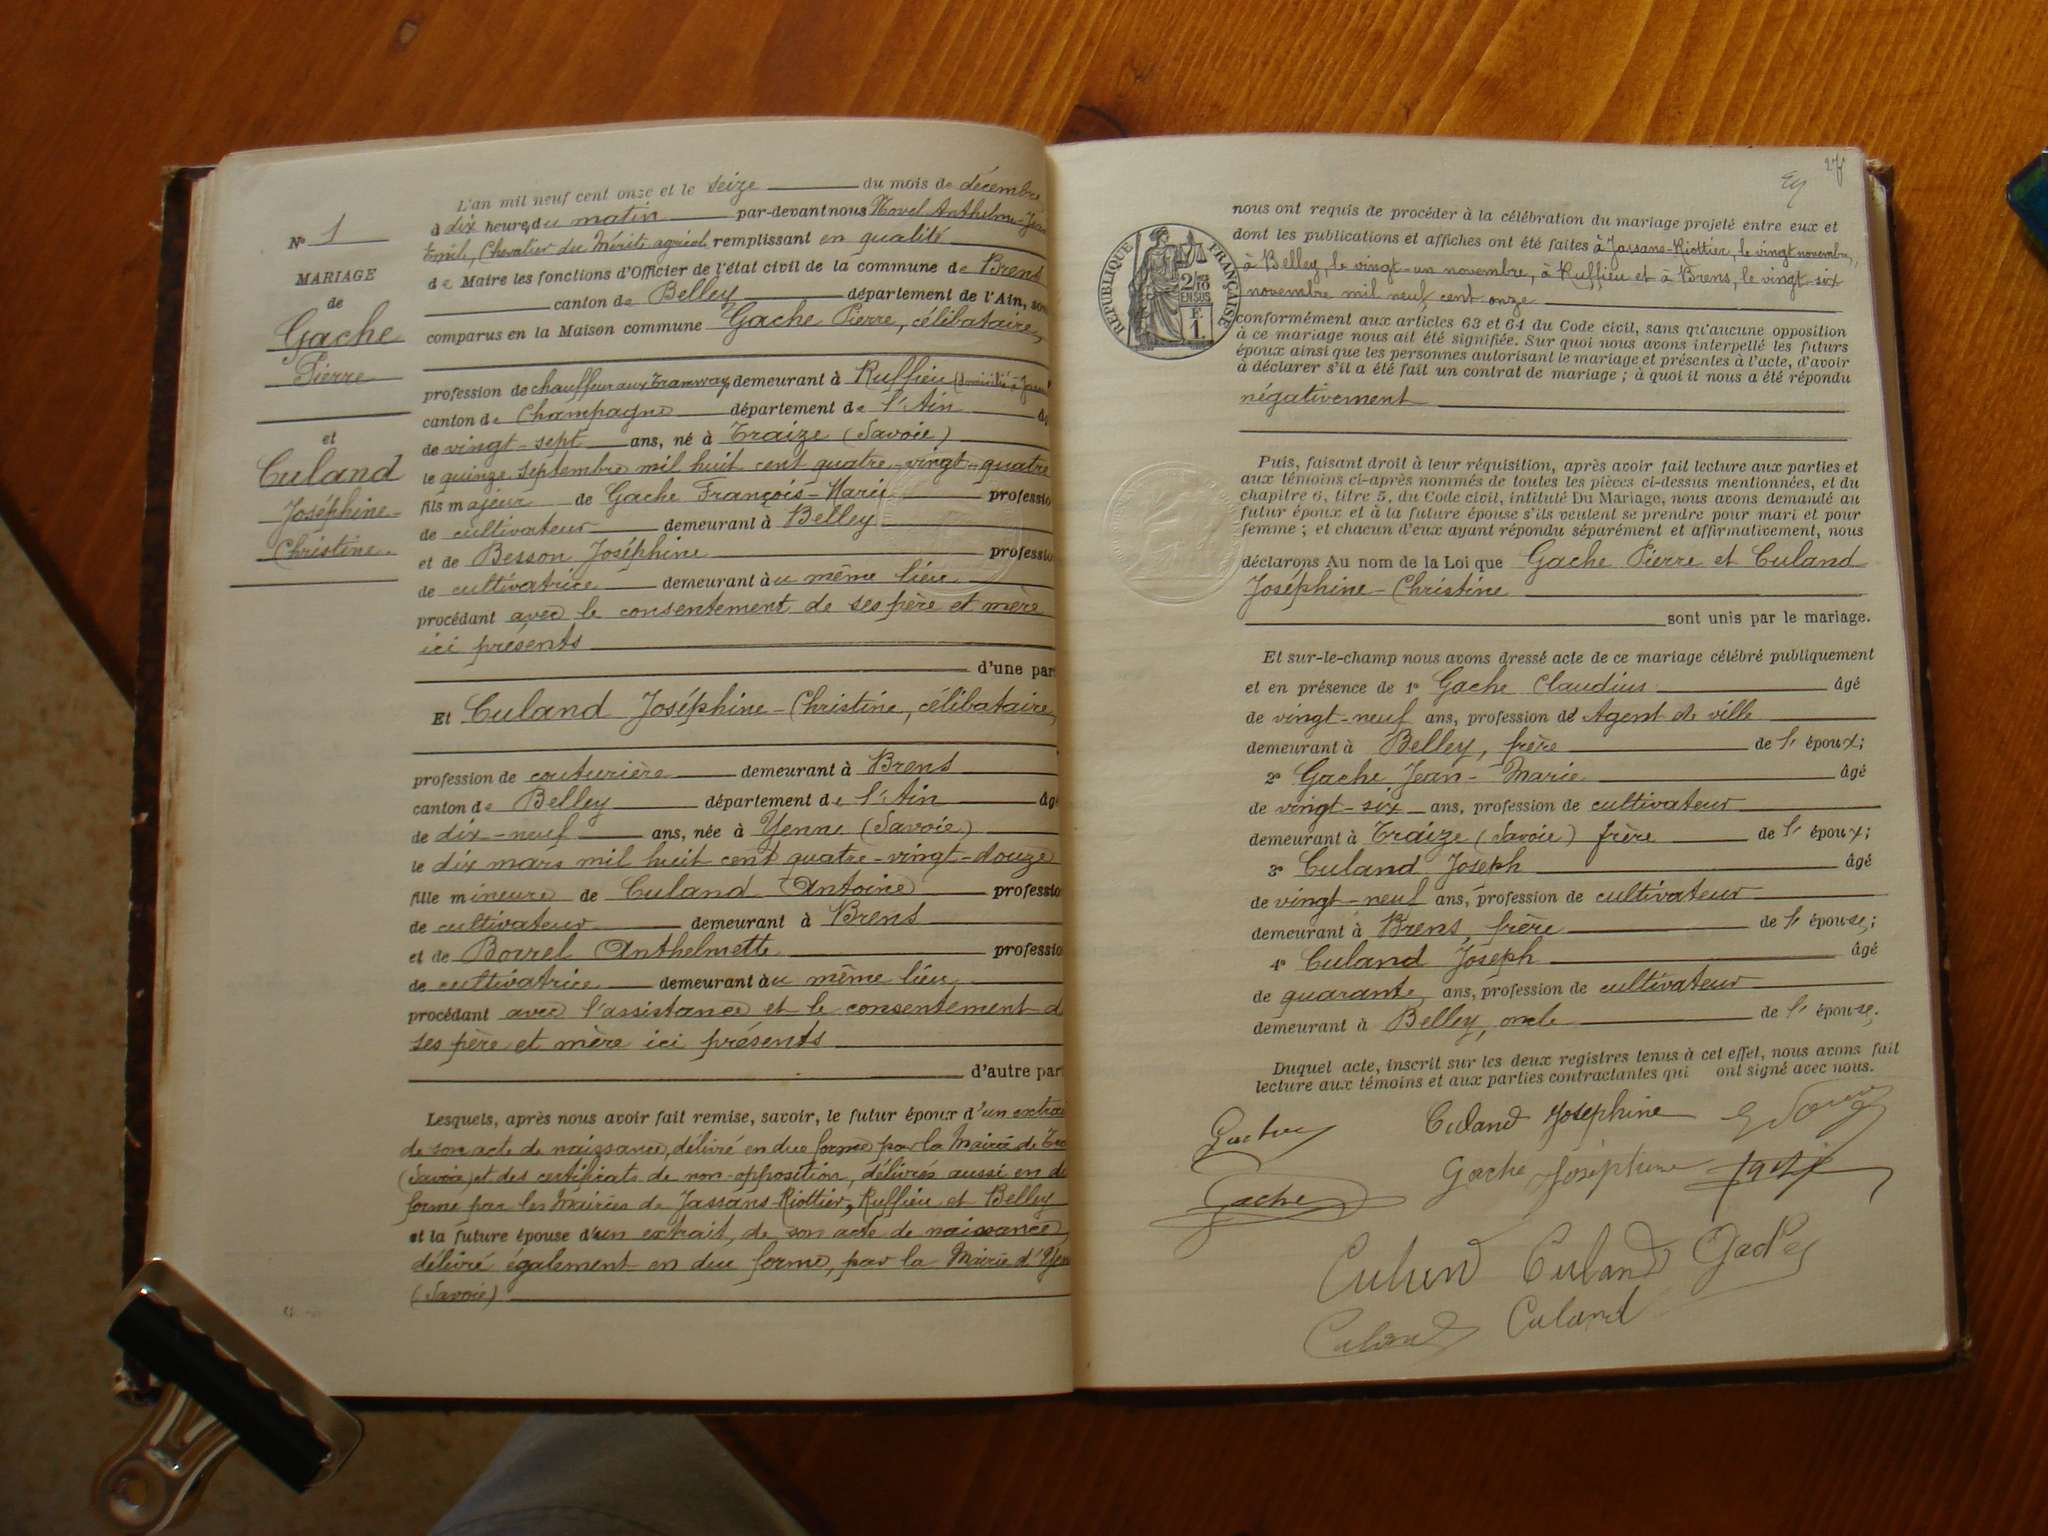 L'an mil neuf cent onze et le seize du mois de décembre
à dix heures du matin par-devant nous Anthelme-Jean
Emile, Chevalier du Mérite agricole remplissant en qualité
de Maire les fonctions d'Officier de l'état civil de la commune de Brens
canton de Belley département de l'Ain, son
comparus en la Maison commune Gache Pierre, célibataire,
No 1
MARIAGE
de
Gache
Pierre
et
Culand
Joséphine-
Christine.
profession de chauffeur aux tramways demeurant à Ruffieu
canton de Champagne département de l'Ain
de vingt-sept ans, né à Traize (Savoie)
le quinze septembre mil huit cent quatre-vingt-quatre
fils majeur de Gache François-Marie professio
de cultivateur demeurant à Belley
et de Besson Joséphine professio
de cultivatrice demeurant au même lieu
procédant avec le consentement de ses père et mère
ici présents
d'une par
Et Culand Joséphine-Christine, célibataire,
profession de couturière demeurant à Brens
canton de Belley département de l'Ain âg
de dix-neuf ans, née à Yenne (Savoie)
le dix mars mil huit cent quatre-vingt-douze
fille mineure de Culand Antoine professio
de cultivateur demeurant à Brens
et de Borrel Anthelmette professio
de cultivatrice demeurant au même lieu
procédant avec l'assistance et le consentement d
ses père et mère ici présents
d'autre par
Lesquels, après nous avoir fait remise, savoir, le futur époux d'un extrai
de son acte de naissance, délivré en due forme par la Mairie de Tra
(Savoie) et des certificats de non-opposition, délivrés aussi en d
forme par les Mairies de Jassans-Riottier, Ruffieu et Belley
et la future épouse d'un extrait, de son acte de naissance,
délivré également en due forme, par la Mairie d'Yen
(Savoie)
27
RÉPUBLIQUE FRANÇAISE
2/10
EN SUS
F
1
nous ont requis de procéder à la célébration du mariage projeté entre eux et
dont les publications et affiches ont été faites à Jassans-Riottier, le vingt novembre,
à Belley, le vingt-un novembre, à Ruffieu et à Brens, le vingt-six
novembre mil neuf cent onze
conformément aux articles 63 et 64 du Code civil, sans qu'aucune opposition
à ce mariage nous ait été signifiée. Sur quoi nous avons interpellé les futurs
époux ainsi que les personnes autorisant le mariage et présentes à l'acte, d'avoir
à déclarer s'il a été fait un contrat de mariage ; à quoi il nous a été répondu
négativement
Puis, faisant droit à leur réquisition, après avoir fait lecture aux parties et
aux témoins ci-après nommés de toutes les pièces ci-dessus mentionnées, et du
chapitre 6, titre 5, du Code civil, intitulé Du Mariage, nous avons demandé au
futur époux et à la future épouse s'ils veulent se prendre pour mari et pour
femme ; et chacun d'eux ayant répondu séparément et affirmativement, nous
déclarons Au nom de la Loi que Gache Pierre et Culand
Joséphine-Christine
sont unis par le mariage.
Et sur-le-champ nous avons dressé acte de ce mariage célébré publiquement
et en présence de 1º Gache Claudius âgé
de vingt-neuf ans, profession d'Agent de ville
demeurant à Belley, frère de l'époux;
2º Gache Jean-Marie âgé
de vingt-six ans, profession de cultivateur
demeurant à Traize (Savoie) frère de l'époux;
3º Culand Joseph âgé
de vingt-neuf ans, profession de cultivateur
demeurant à Brens, frère de l'épouse;
4º Culand Joseph âgé
de quarante ans, profession de cultivateur
demeurant à Belley, oncle de l'épouse.
Duquel acte, inscrit sur les deux registres tenus à cet effet, nous avons fait
lecture aux témoins et aux parties contractantes qui ont signé avec nous.
Culand Joséphine
Gache Joséphine
Gache
Culand Culand
Culand